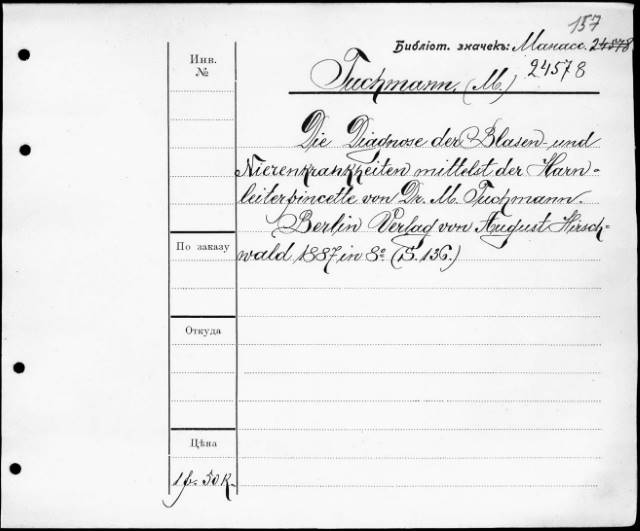 157
Библіот. значекъ: Манасс. 24578
24578
Инв.
№
Tuchmann, (M.)
Die Diagnose der Blasen- und
Nierenkrankheiten mittelst der Harn-
leiterpincette von Dr. M. Tuchmann.
Berlin Verlag von August Hirsch-
wald 1887 in 8º. (S. 136.)
По заказу
Откуда
Цѣна
1 р. 50 к.